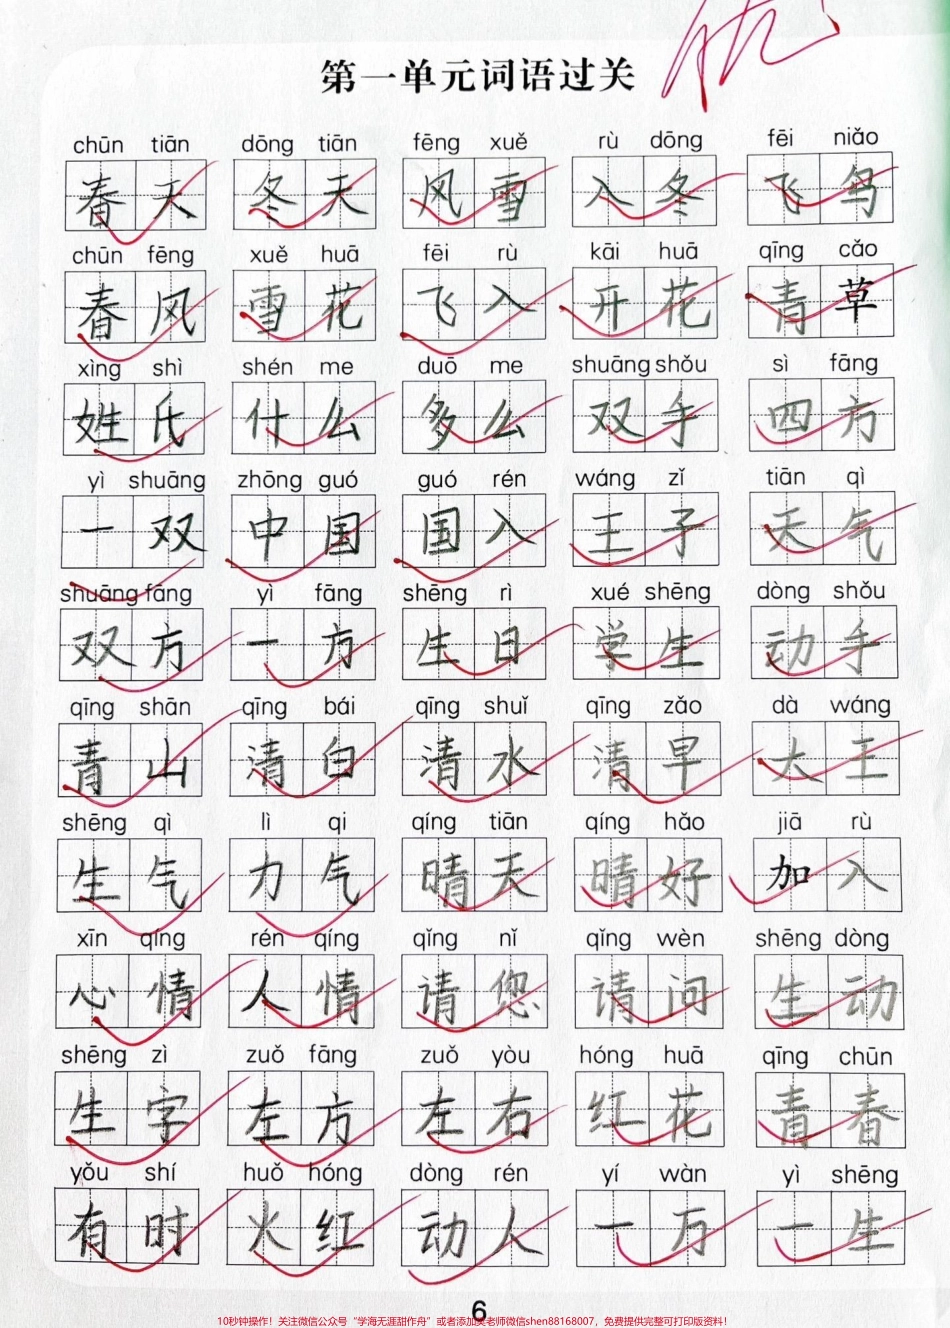 优
第一单元词语过关
chūn tiān dōng tiān fēng xuě rù dōng fēi niǎo
春天 冬天 风雪 入冬 飞鸟
chūn fēng xuě huā fēi rù kāi huā qīng cǎo
春风 雪花 飞入 开花 青草
xìng shì shén me duō me shuāng shǒu sì fāng
姓氏 什么 多么 双手 四方
yì shuāng zhōng guó guó rén wáng zǐ tiān qì
一双 中国 国入 王子 天气
shuāng fāng yì fāng shēng rì xué shēng dòng shǒu
双方 一方 生日 学生 动手
qīng shān qīng bái qīng shuǐ qīng zǎo dà wáng
青山 清白 清水 清早 大王
shēng qì lì qi qíng tiān qíng hǎo jiā rù
生气 力气 晴天 晴好 加入
xīn qíng rén qíng qǐng nǐ qǐng wèn shēng dòng
心情 人情 请您 请问 生动
shēng zì zuǒ fāng zuǒ yòu hóng huā qīng chūn
生字 左方 左右 红花 青春
yǒu shí huǒ hóng dòng rén yí wàn yì shēng
有时 火红 动人 一万 一生
6
10秒钟操作！关注微信公众号“学海无涯甜作舟”或者添加吴老师微信shen88168007，免费提供完整可打印版资料！